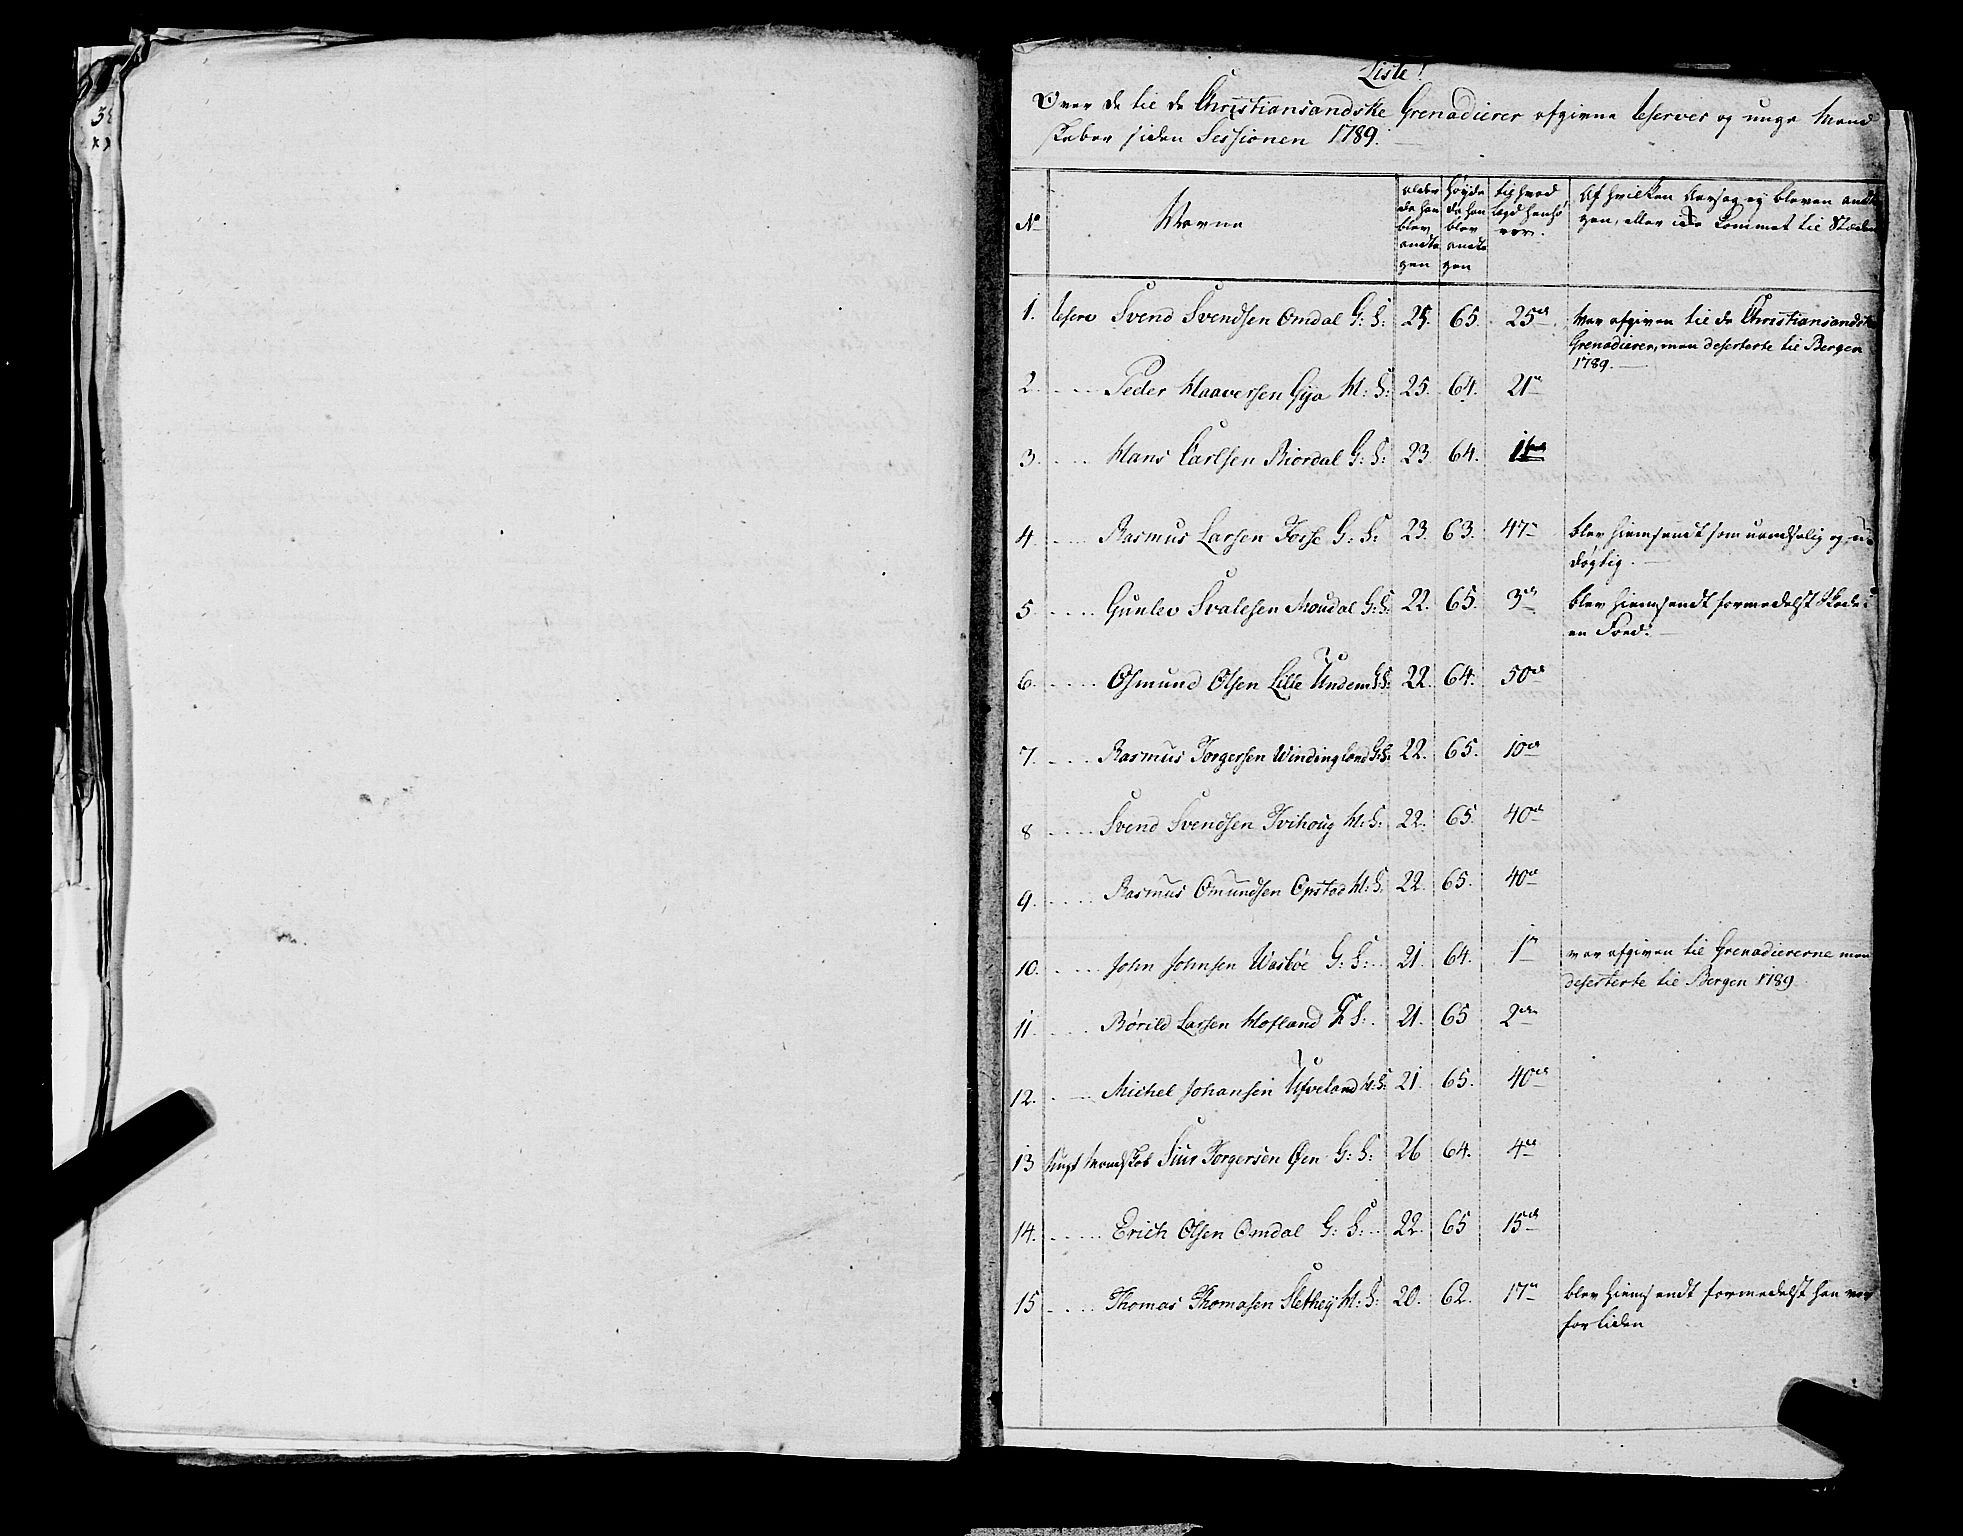 Liste!
Over de til de Christiansandske Grenadierer afgivne Reserver og unge Mand
skaber siden Sessionen 1789.
No
Navne
alder
da han
blev
andta
gen
Høyde
da han
blev
andta
gen
til hvad
Lægd henhø
rer.
Af hvilken Aarsag ey bleven andta
gen, eller icke kommet til Stæden
1. Reserv Svend Svendsen Omdal G: S: 25. 65. 25de Var afgiven til de Christiansandske
Grenadierer, men deserterte til Bergen
1789.
2. Peder Haaversen Gya H: S: 25. 64. 21
3. Hans Carlsen Biordal G: S: 23 64.
4. Rasmus Larsen Forse G: S: 23. 63. 47 blev hiemsendt som uandselig og u-
døgtig.
5. Gunlev Svalesen Moudal G: S: 22. 65. 3de blev hiemsendt formedelst Skade i
en Foed.
6. Osmund Olsen Lille Undem G: S: 22. 64. 50de
7. Rasmus Torgersen Windingland G: S: 22. 65. 10de
8 Svend Svendsen Tvihoug H: S: 22. 65. 40de
9. Rasmus Omundsen Opstad H: S: 22. 65. 40de
10. John Johnsen Wasbøe G: S: 21. 64. 1 var afgiven til Grenadiererne men
deserterte til Bergen 1789
11. Børild Larsen Hofland S: 21. 65 2den
12. Michel Johansen Ufveland H: S: 21. 65. 40de
13 Ungt Mandskab Siur Torgersen Øen G: S: 26 64. 4de
14. Erich Olsen Omdal G: S: 22. 65 15de
15 Thomas Thomasen Slethey H: S: 20. 62. 17 blev hiemsendt formedelst han var
for liden